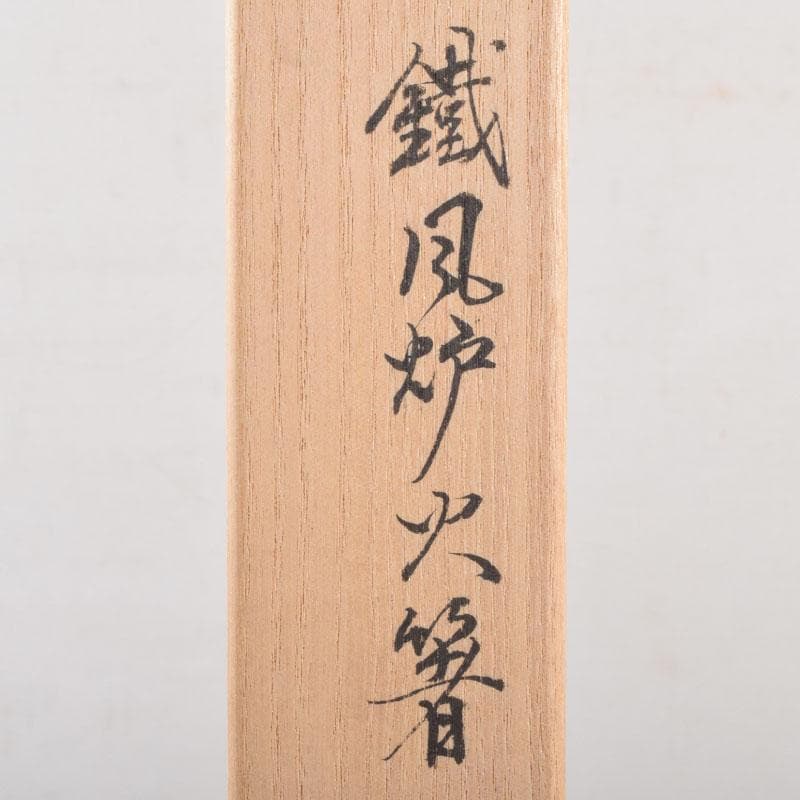 鐵風炉火箸